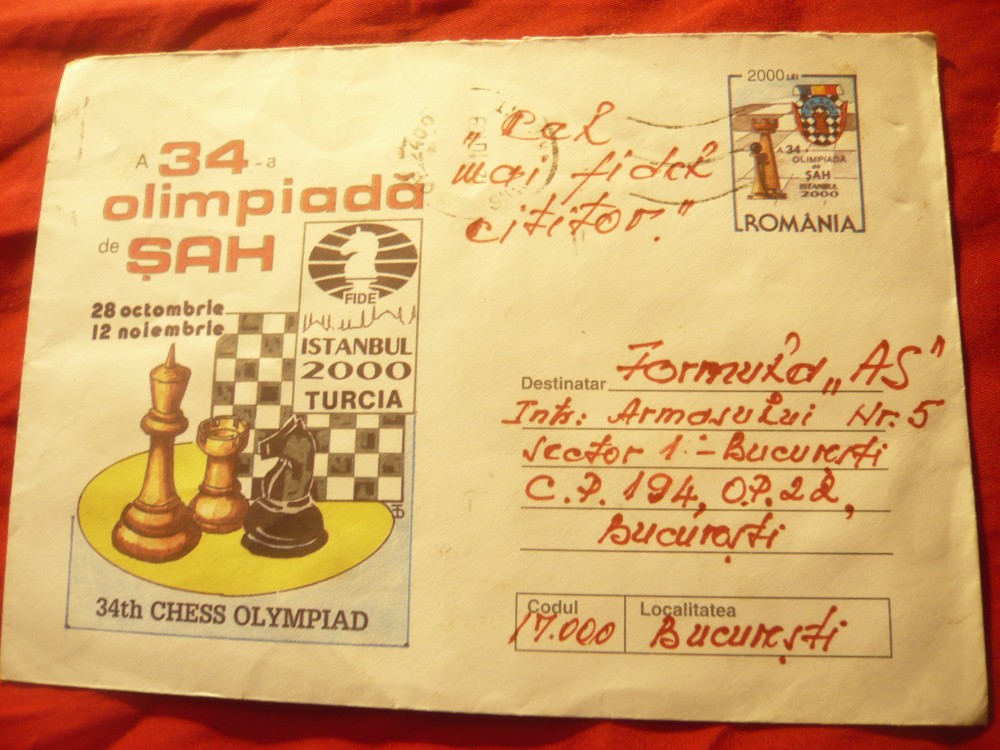 A 34-a
olimpiadă
de ȘAH
28 octombrie
12 noiembrie
FIDE
ISTANBUL
2000
TURCIA
34th CHESS OLYMPIAD
„Cel
mai fidel
cititor."
2000 LEI
A 34
OLIMPIADĂ
de
ȘAH
ISTANBUL
2000
ROMÂNIA
Destinatar Formula „AS"
Intr: Armasului Nr. 5
sector 1 - București
C.P. 194, O.P. 22,
București
Codul Localitatea
17.000 București